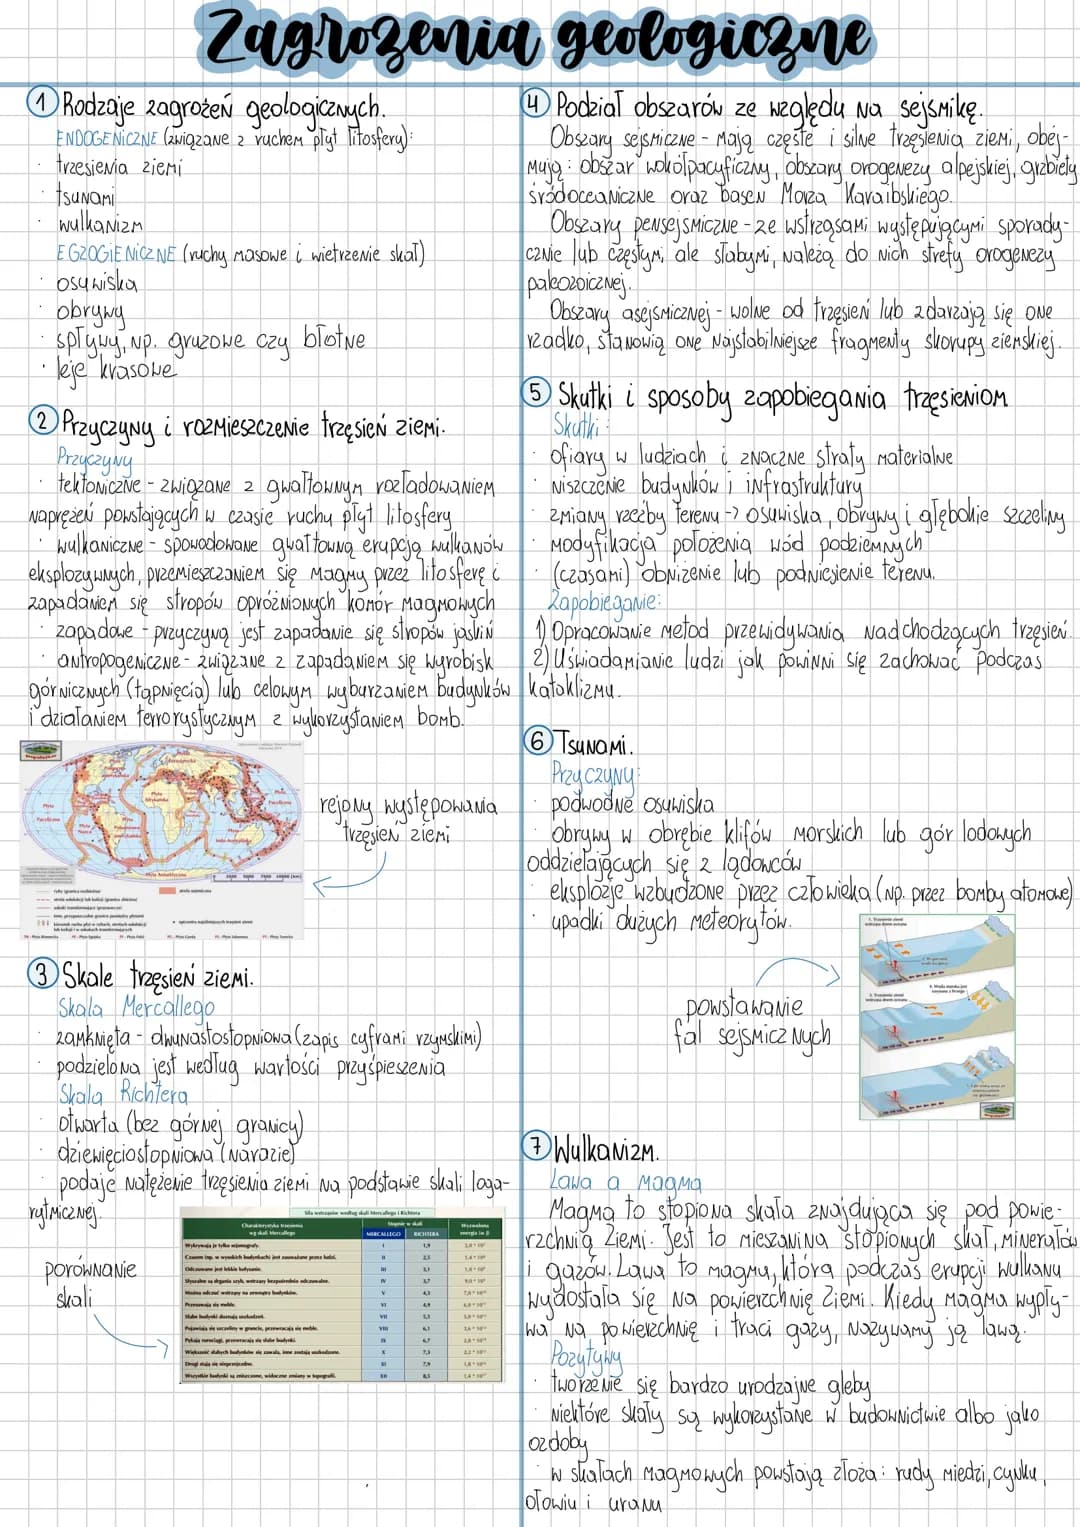 Zagrożenia geologiczne
1 Rodzaje zagrożeń geologicznych.
ENDOGENICZNE (związane z ruchem płyt litosfery):
· trzesienia ziemi
· tsunami
· wulkanizm
EGZOGIENICZNE (ruchy masowe i wietrzenie skał)
· osuwiska
· obrywy
· spływy, np. gruzowe czy błotne
· leje krasowe
2 Przyczyny i rozmieszczenie trzęsień ziemi.
Przyczyny
· tektoniczne - związane z gwałtownym rozładowaniem
naprężeń powstających w czasie ruchu płyt litosfery
· wulkaniczne - spowodowane gwałtowną erupcją wulkanów
eksplozywnych, przemieszczaniem się magmy przez litosferę i
zapadaniem się stropów opróżnionych komór magmowych
· zapadowe - przyczyną jest zapadanie się stropów jaskiń
· antropogeniczne - związane z zapadaniem się wyrobisk
górniczych (tąpnięcia) lub celowym wyburzaniem budynków
i działaniem terrorystycznym z wykorzystaniem bomb.
rejony występowania
trzęsień ziemi
3 Skale trzęsień ziemi.
Skala Mercallego
· zamknięta - dwunastostopniowa (zapis cyframi rzymskimi)
· podzielona jest według wartości przyśpieszenia
Skala Richtera
· otwarta (bez górnej granicy)
· dziewięciostopniowa (narazie)
· podaje natężenie trzęsienia ziemi na podstawie skali loga-
rytmicznej.
porównanie
skali
Siła wstrząsów według skali Mercallego i Richtera
Charakterystyka trzęsienia
wg skali Mercallego
Stopnie w skali
MERCALLEGO RICHTERA
Wyzwolona
energia (w J)
Wykrywają je tylko sejsmografy. I 1,9
Czasem (np. w wysokich budynkach) jest zauważane przez ludzi. II 2,5
Odczuwane jest lekkie kołysanie. III 3,1
Słyszalne są drgania szyb, wstrząsy bezpośrednio odczuwalne. IV 3,7
Można odczuć wstrząsy na zewnątrz budynków. V 4,3
Przesuwają się meble. VI 4,9
Słabe budynki doznają uszkodzeń. VII 5,5
Pojawiają się szczeliny w gruncie, przewracają się meble. VIII 6,1
Pękają rurociągi, przewracają się słabe budynki. IX 6,7
Większość słabych budynków się zawala, inne zostają uszkodzone. X 7,3
Drogi stają się nieprzejezdne. XI 7,9
Wszystkie budynki są zniszczone, widoczne zmiany w topografii. XII 8,5
4 Podział obszarów ze względu na sejsmikę.
Obszary sejsmiczne - mają częste i silne trzęsienia ziemi, obej-
mują: obszar wokółpacyficzny, obszary orogenezy alpejskiej, grzbiety
śródoceaniczne oraz basen Morza Karaibskiego.
Obszary pensejsmiczne - ze wstrząsami występującymi sporady-
cznie lub częstymi, ale słabymi, należą do nich strefy orogenezy
paleozoicznej.
Obszary asejsmicznej - wolne od trzęsień lub zdarzają się one
rzadko, stanowią one najstabilniejsze fragmenty skorupy ziemskiej.
5 Skutki i sposoby zapobiegania trzęsieniom
Skutki:
· ofiary w ludziach i znaczne straty materialne
· niszczenie budynków i infrastruktury
· zmiany rzeźby terenu -> osuwiska, obrywy i głębokie szczeliny
· modyfikacja położenia wód podziemnych
· (czasami) obniżenie lub podniesienie terenu.
Zapobieganie:
1) Opracowanie metod przewidywania nadchodzących trzęsień.
2) Uświadamianie ludzi jak powinni się zachować podczas
kataklizmu.
6 Tsunami.
Przyczyny:
· podwodne osuwiska
· obrywy w obrębie klifów morskich lub gór lodowych
oddzielających się z lądowców
· eksplozje wzbudzone przez człowieka (np. przez bomby atomowe)
· upadki dużych meteorytów.
powstawanie
fal sejsmicznych
7 Wulkanizm.
Lawa a magma
Magma to stopiona skała znajdująca się pod powie-
rzchnią Ziemi. Jest to mieszanina stopionych skał, minerałów
i gazów. Lawa to magma, która podczas erupcji wulkanu
wydostała się na powierzchnię Ziemi. Kiedy magma wypły-
wa na powierzchnię i traci gazy, nazywamy ją lawą.
Pozytywy
· tworzenie się bardzo urodzajne gleby
· niektóre skały są wykorzystane w budownictwie albo jako
ozdoby
· w skałach magmowych powstają złoża: rudy miedzi, cynku,
ołowiu i uranu